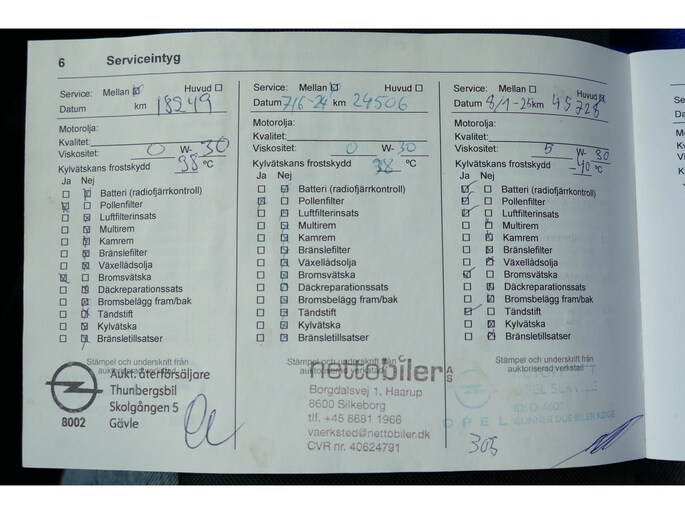 6 Serviceintyg
Service: Mellan Huvud
Datum km 18249
Motorolja:
Kvalitet:
Viskositet: 0 W- 30
Kylvätskans frostskydd 38 °C
Ja Nej
Batteri (radiofjärrkontroll)
Pollenfilter
Luftfilterinsats
Multirem
Kamrem
Bränslefilter
Växellådsolja
Bromsvätska
Däckreparationssats
Bromsbelägg fram/bak
Tändstift
Kylvätska
Bränsletillsatser
Stämpel och underskrift från
auktoriserad verkstad
Aukt. återförsäljare
Thunbergsbil
Skolgången 5
8002 Gävle
Service: Mellan Huvud
Datum 7/6-24 km 24506
Motorolja:
Kvalitet:
Viskositet: 0 W- 30
Kylvätskans frostskydd 38 °C
Ja Nej
Batteri (radiofjärrkontroll)
Pollenfilter
Luftfilterinsats
Multirem
Kamrem
Bränslefilter
Växellådsolja
Bromsvätska
Däckreparationssats
Bromsbelägg fram/bak
Tändstift
Kylvätska
Bränsletillsatser
Stämpel och underskrift från
auktoriserad verkstad
nettobiler A/S
Borgdalsvej 1, Haarup
8600 Silkeborg
tlf. +45 8681 1966
vaerksted@nettobiler.dk
CVR nr. 40624791
Service: Mellan Huvud
Datum 8/1-26 km 45728
Motorolja:
Kvalitet:
Viskositet: 5 W- 30
Kylvätskans frostskydd -40 °C
Ja Nej
Batteri (radiofjärrkontroll)
Pollenfilter
Luftfilterinsats
Multirem
Kamrem
Bränslefilter
Växellådsolja
Bromsvätska
Däckreparationssats
Bromsbelägg fram/bak
Tändstift
Kylvätska
Bränsletillsatser
Stämpel och underskrift från
auktoriserad verkstad
OPEL SERVICE
OPEL GUNNER DUE BILER KØGE
305